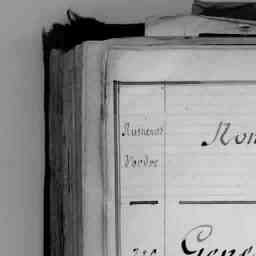 Numéros
d'ordre
Nom
Gene